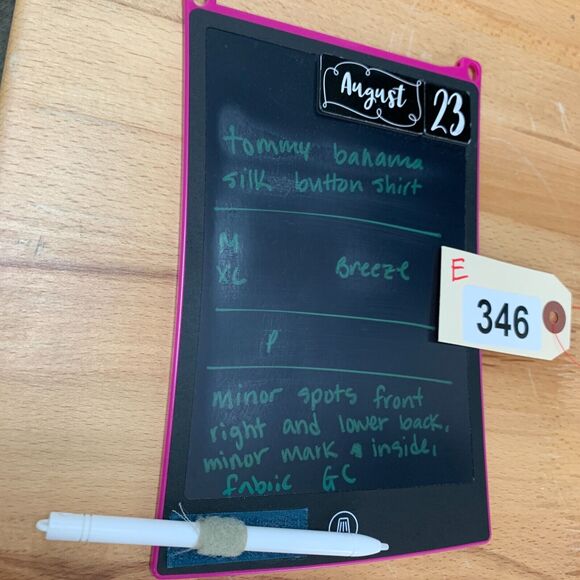 August 23
tommy bahama
silk button shirt
M
XL Breeze
E
346
P
minor spots front
right and lower back,
minor mark inside,
fabric GC